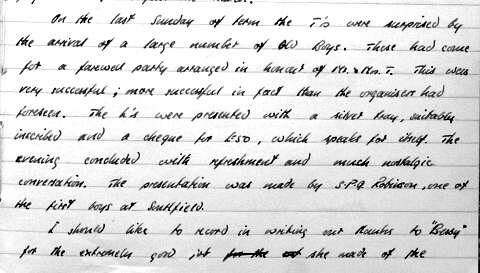 On the last Sunday of term the T's were surprised by
the arrival of a large number of Old Boys. These had come
for a farewell party arranged in honour of Mr. & Mrs. T. This was
very successful; more successful in fact than the organisers had
foreseen. The T's were presented with a silver tray, suitably
inscribed and a cheque for £50, which speaks for itself. The
evening concluded with refreshment and much nostalgic
conversation. The presentation was made by S.P.Q. Robinson, one of
the first boys at Southfield.
I should like to record in writing our thanks to "Bessy"
for the extremely good job for the she made of the